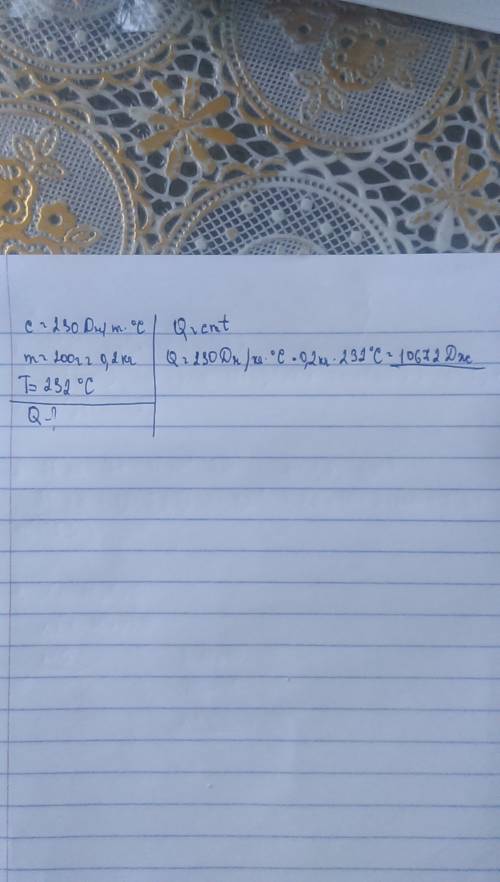 c = 230 Дж/т·°C
m = 200г = 0,2 кг
T = 232 °C
Q - ?
Q = cmt
Q = 230 Дж/кг·°C · 0,2 кг · 232 °C = 10672 Дж